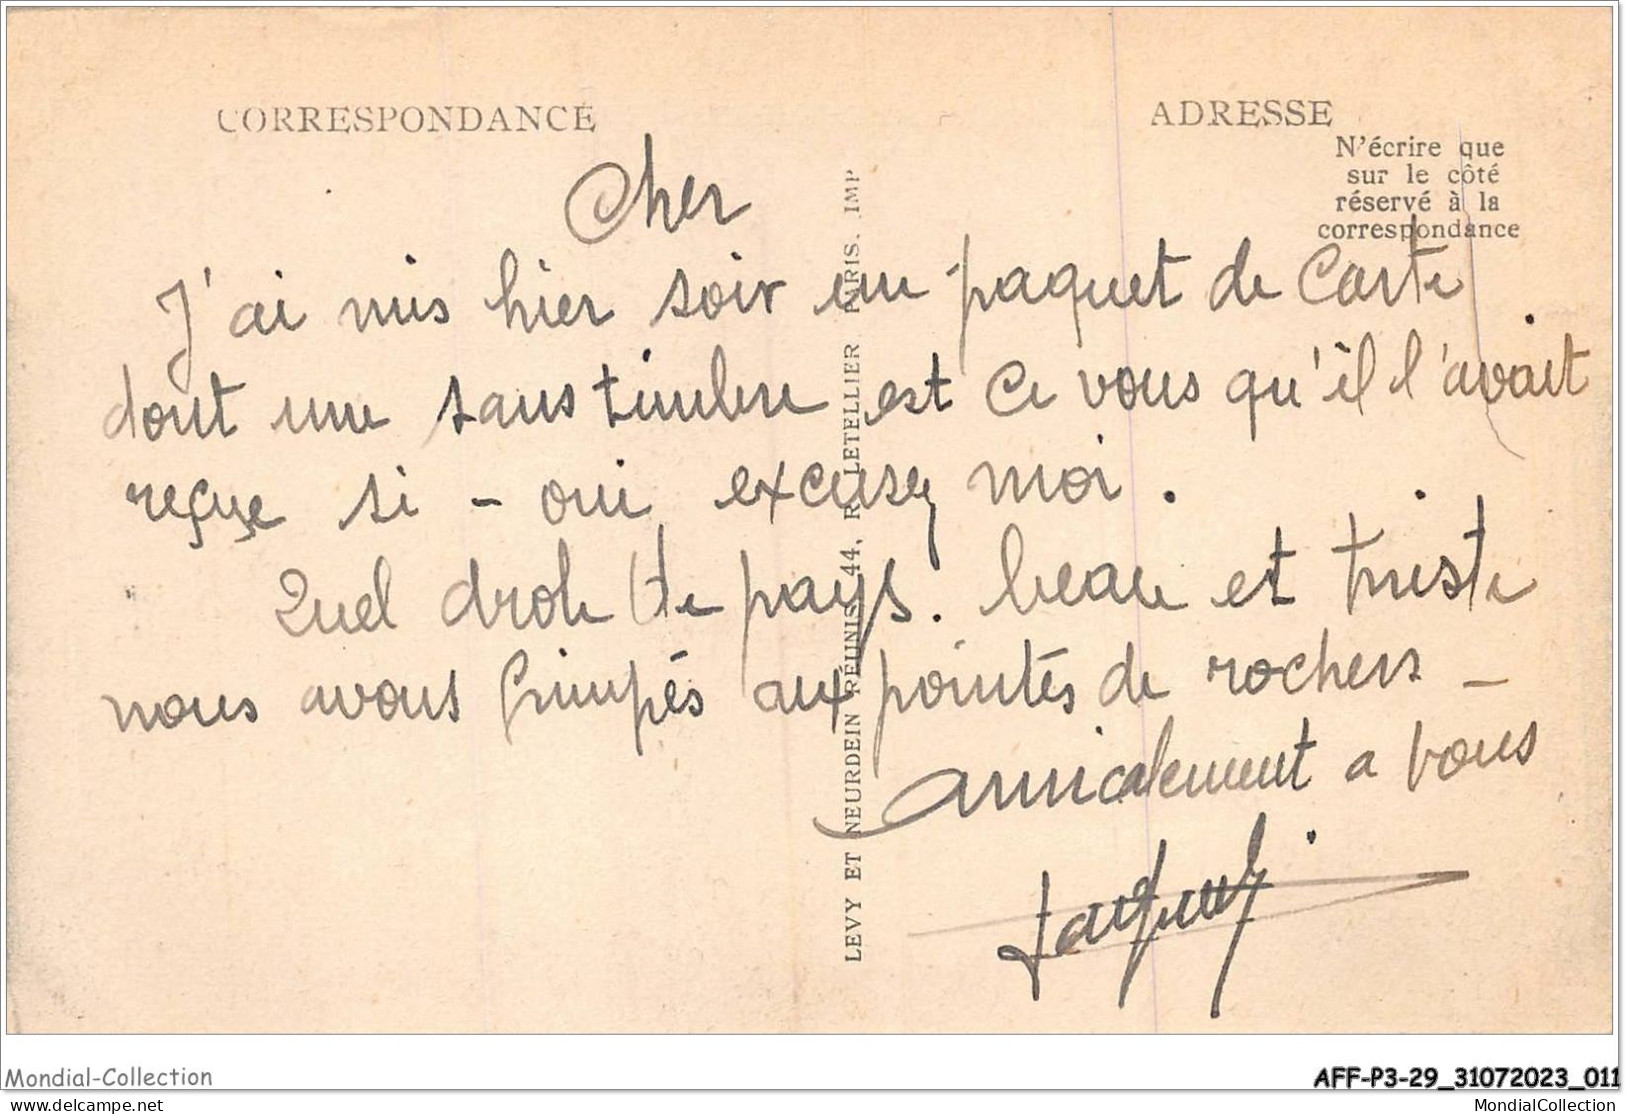 CORRESPONDANCE
ADRESSE
N'écrire que
sur le côté
réservé à la
correspondance
Cher
J'ai mis hier soir un paquet de Carte
dont une sans timbre est ce vous qu'il l'avait
reçue si - oui excusez moi.
Quel drole de pays. beau et triste
nous avons grimpés aux pointes de rochers -
amicalement a vous
LEVY ET NEURDEIN RÉUNIS, 44, R. LETELLIER PARIS. IMP
Mondial-Collection
AFF-P3-29_31072023_011
delcampe.net
MondialCollection